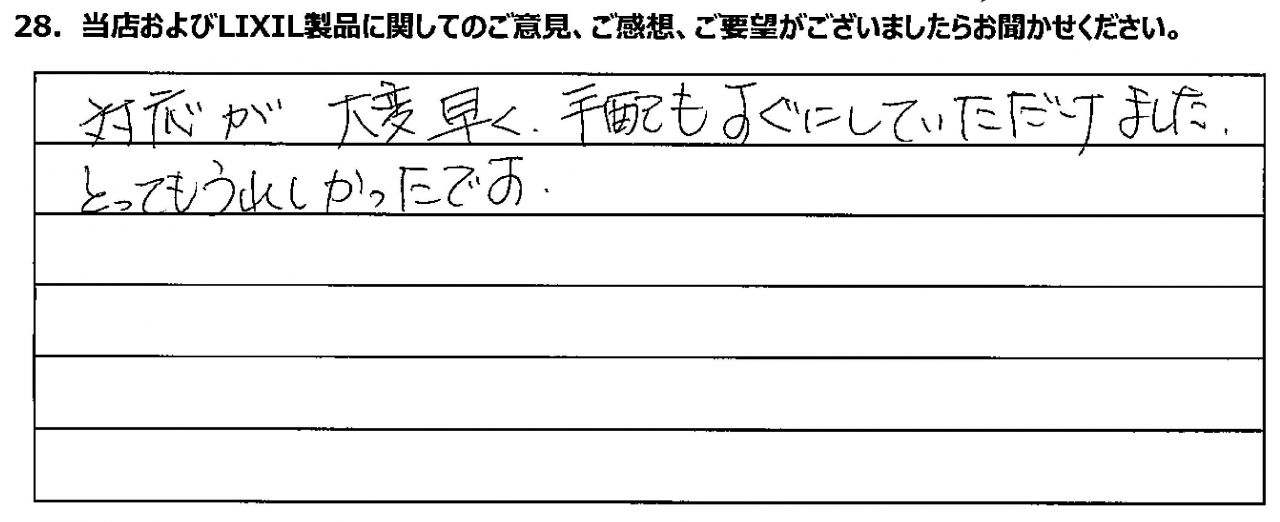 28. 当店およびLIXIL製品に関してのご意見、ご感想、ご要望がございましたらお聞かせください。
対応が 大変早く、手配もすぐにしていただけました.
とってもうれしかったです.